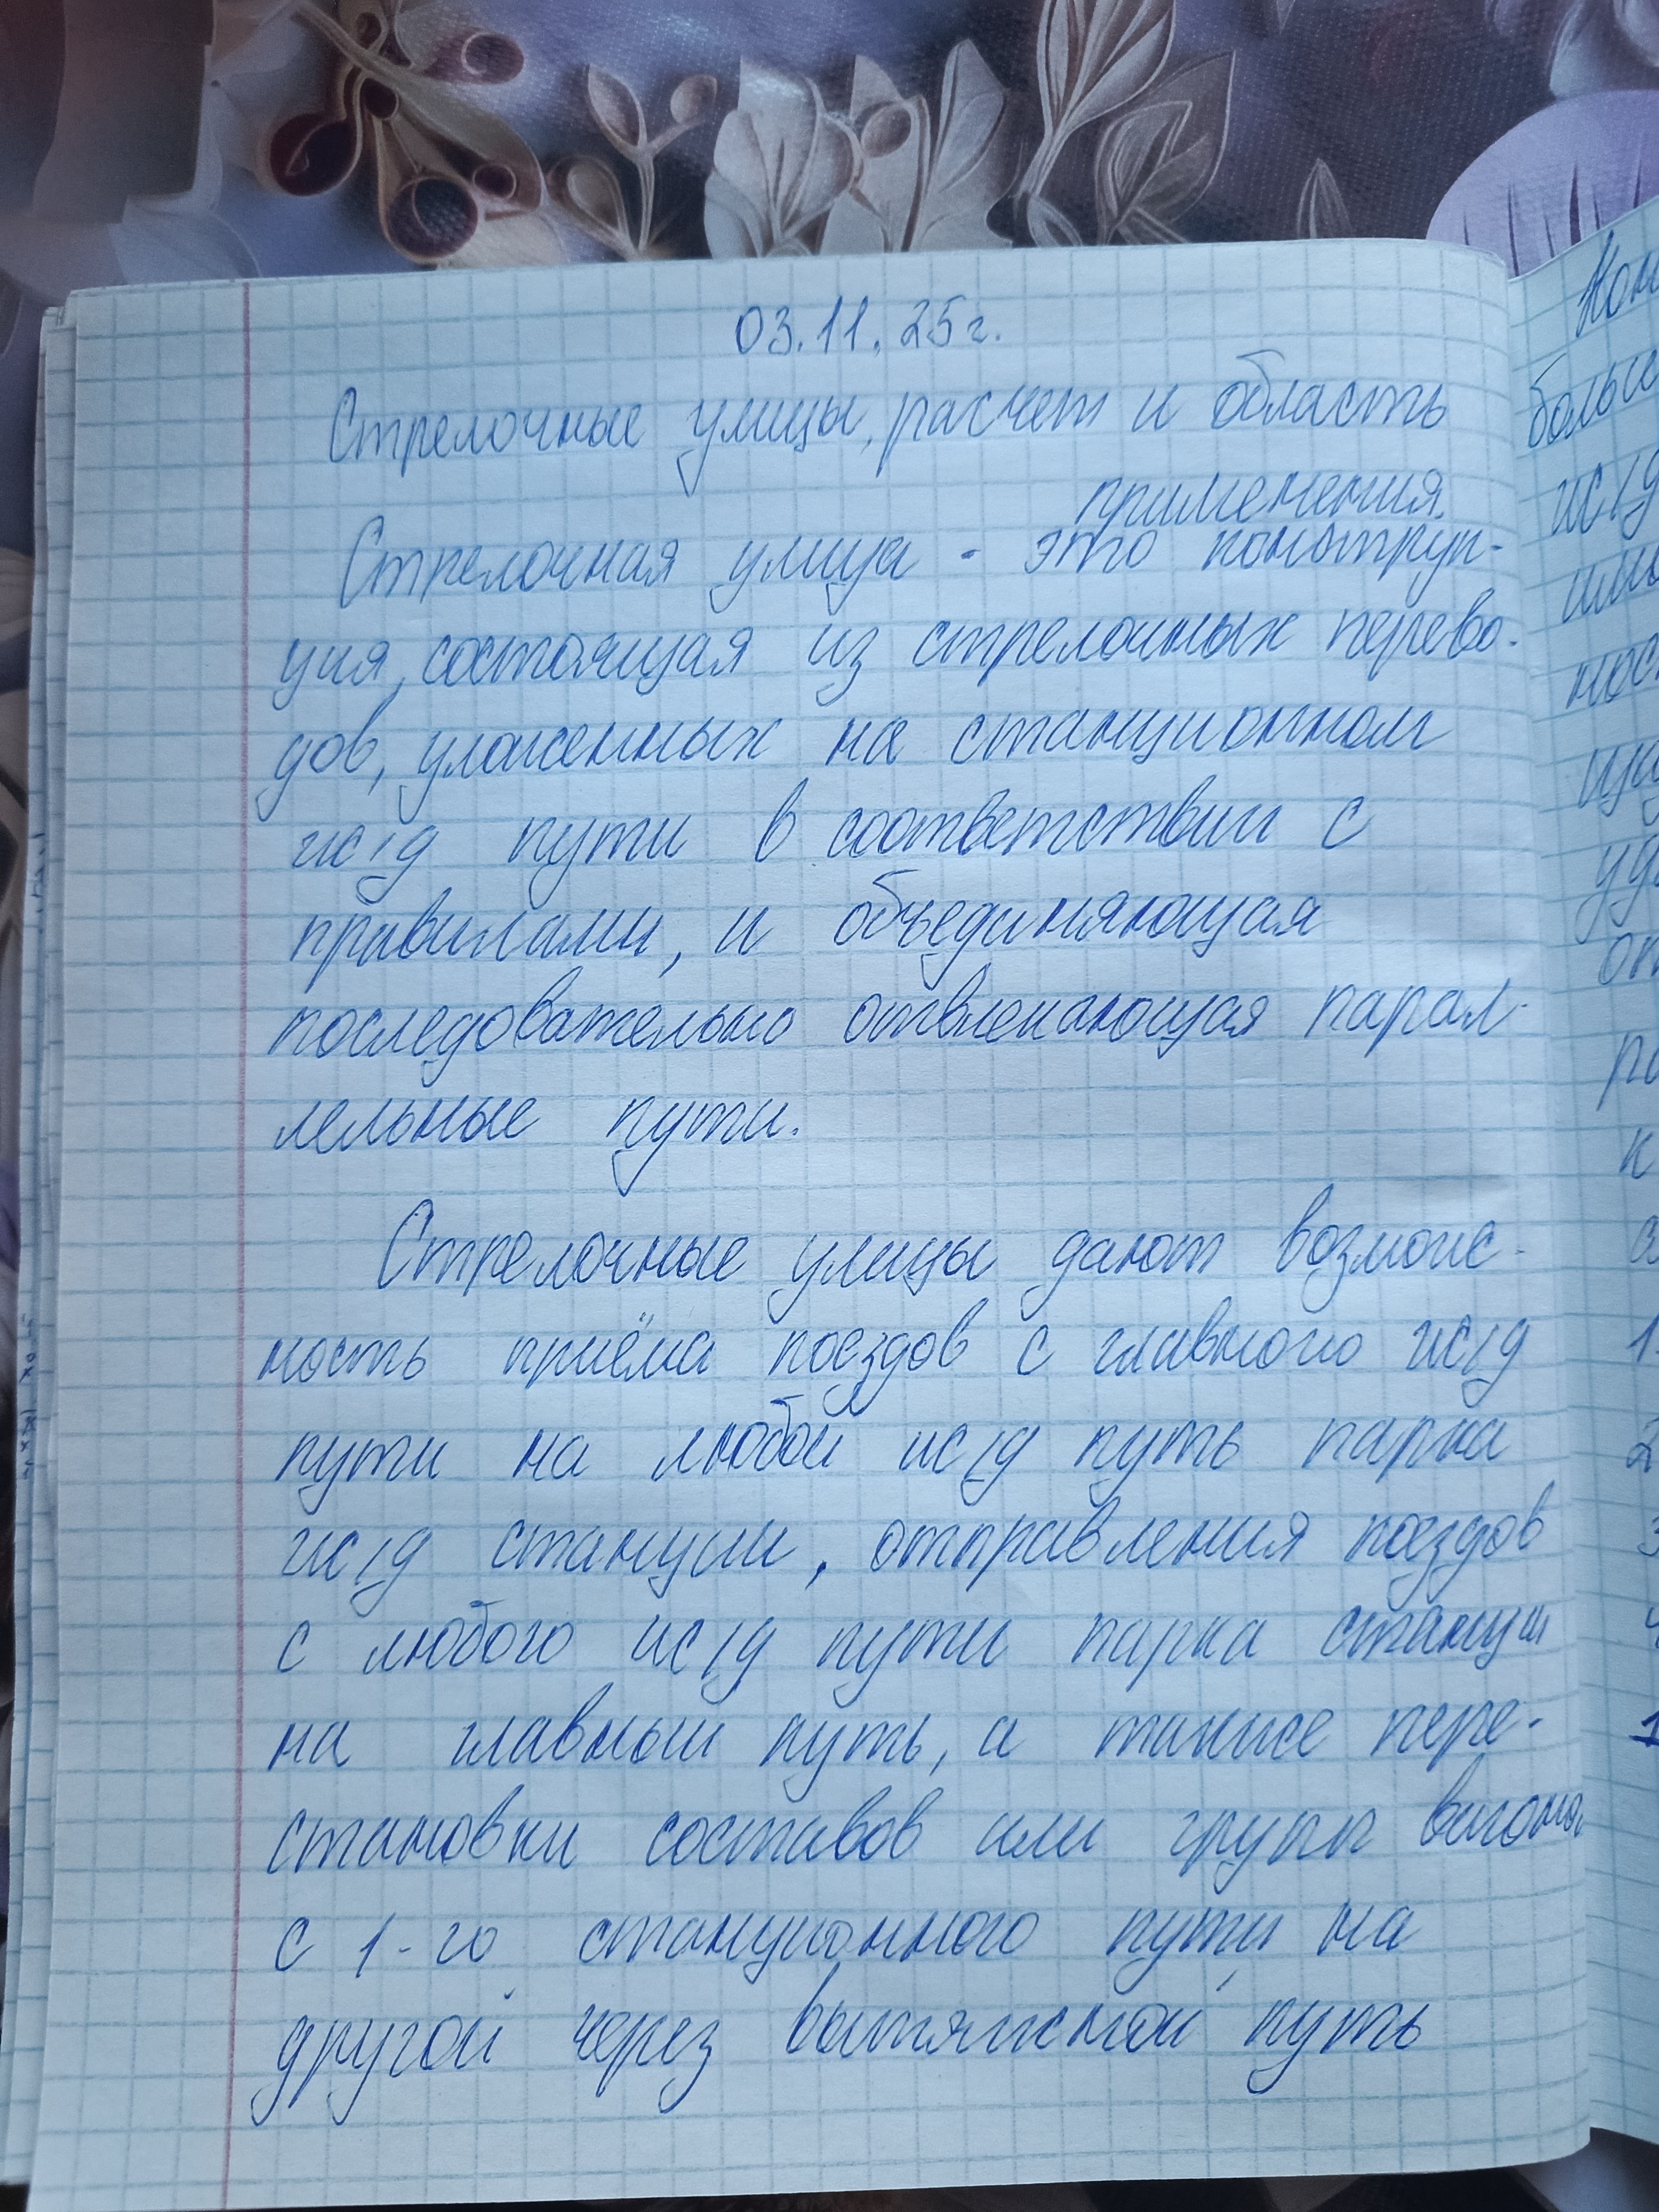 03.11.25г.
Стрелочные улицы, расчет и область
применения.
Стрелочная улица - это конструк-
ция, состоящая из стрелочных перево-
дов, уложенных на станционном
ж/д пути в соответствии с
правилами, и объединяющая
последовательно отвлекающая парал-
лельные пути.
Стрелочные улицы дают возмож-
ность приёма поездов с главного ж/д
пути на любой ж/д путь парка
ж/д станции, отправления поездов
с любого ж/д пути парка станции
на главный путь, а также пере-
становки составов или групп вагонов
с 1-го станционного пути на
другой через вытяжной путь